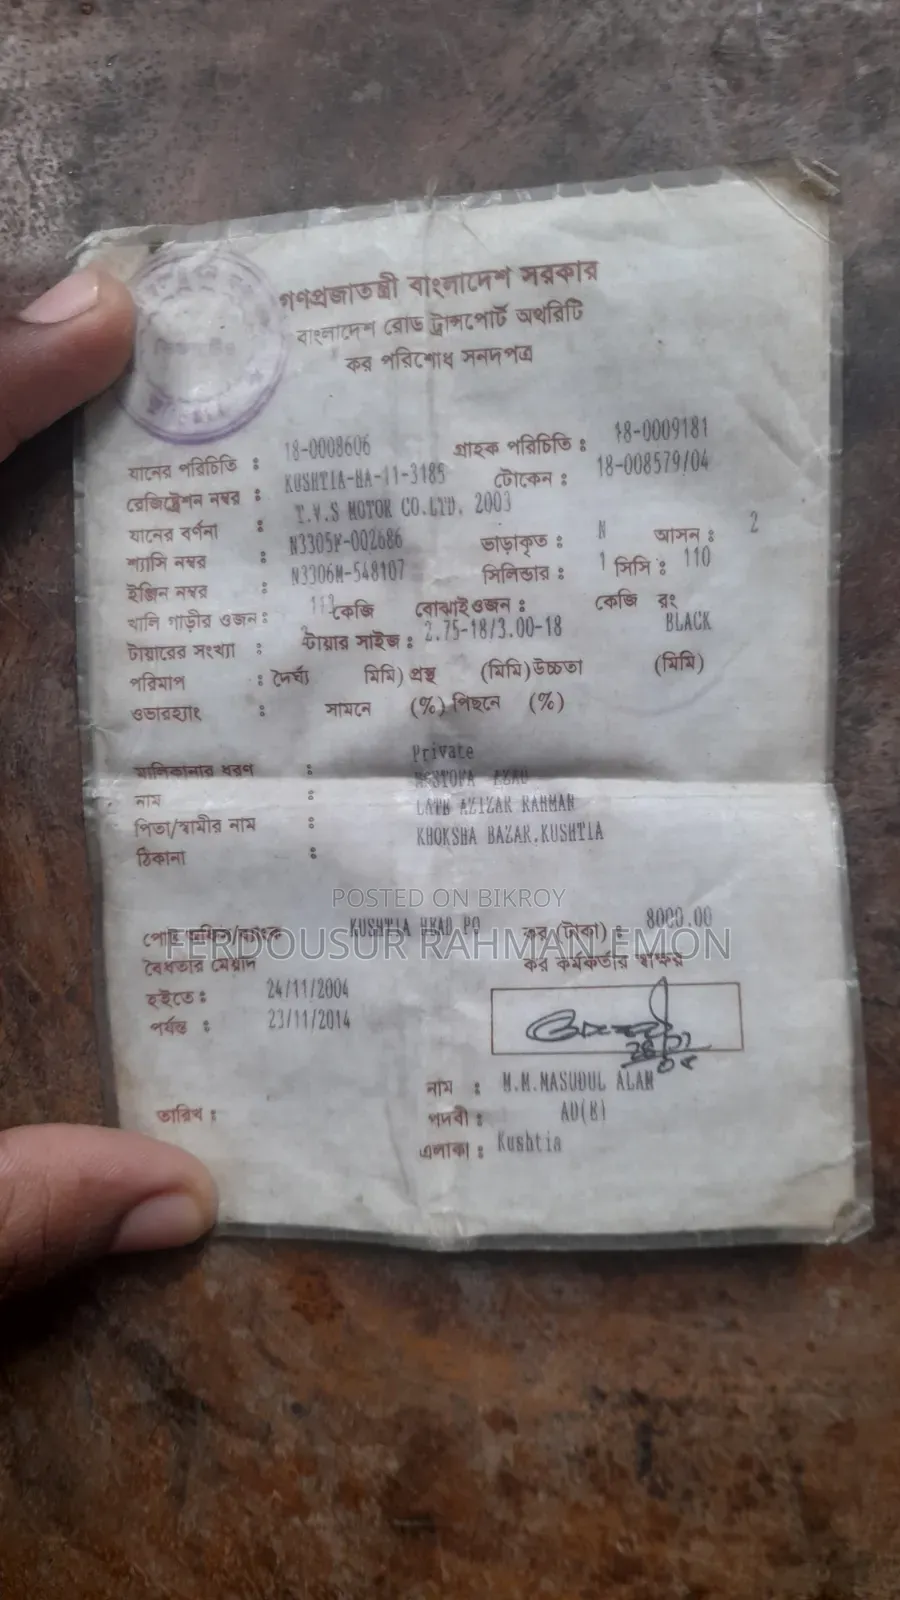 গণপ্রজাতন্ত্রী বাংলাদেশ সরকার
বাংলাদেশ রোড ট্রান্সপোর্ট অথরিটি
কর পরিশোধ সনদপত্র
যানের পরিচিতি : 18-0008606 গ্রাহক পরিচিতি : 18-0009181
রেজিষ্ট্রেশন নম্বর : KUSHTIA-HA-11-3185 টোকেন : 18-008579/04
যানের বর্ণনা : T.V.S MOTOR CO.LTD. 2003
শ্যাসি নম্বর : N3305F-002686 ভাড়াকৃত : N আসন : 2
ইঞ্জিন নম্বর : N3306M-548107 সিলিন্ডার : 1 সিসি : 110
খালি গাড়ীর ওজন : 113 কেজি বোঝাই ওজন : কেজি রং
টায়ারের সংখ্যা : 2 টায়ার সাইজ : 2.75-18/3.00-18 BLACK
পরিমাপ : দৈর্ঘ্য মিমি) প্রস্থ (মিমি) উচ্চতা (মিমি)
ওভারহ্যাং : সামনে (%) পিছনে (%)
মালিকানার ধরণ : Private
নাম :
পিতা/স্বামীর নাম : LATE AZIZAR RAHMAN
ঠিকানা : KHOKSHA BAZAR.KUSHTIA
POSTED ON BIKROY
পোষ্ট অফিস/ব্যাংক KUSHTIA HEAD PO কর (টাকা) : 8000.00
FERDOUSUR RAHMAN EMON
বৈধতার মেয়াদ কর কর্মকর্তার স্বাক্ষর
হইতে : 24/11/2004
পর্যন্ত : 23/11/2014
নাম : M.M.MASUDUL ALAM
তারিখ : পদবী : AD(E)
এলাকা : Kushtia